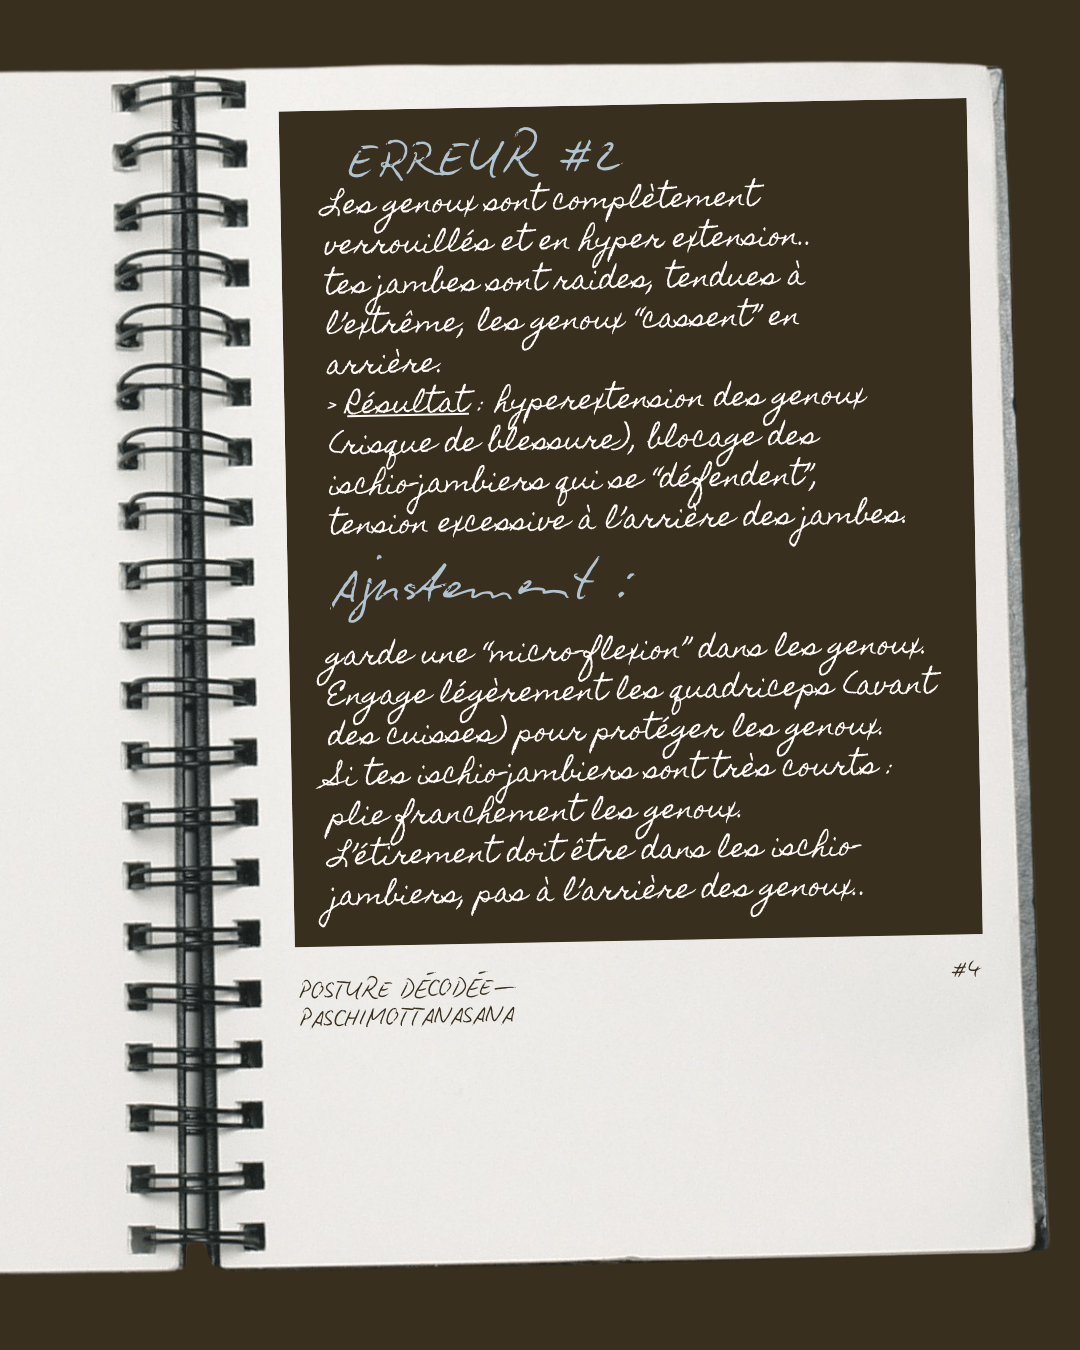 ERREUR #2
Les genoux sont complètement
verrouillés et en hyper extension..
tes jambes sont raides, tendues à
l'extrême, les genoux “cassent” en
arrière.
> Résultat : hyperextension des genoux
(risque de blessure), blocage des
ischio-jambiers qui se “défendent”,
tension excessive à l'arrière des jambes.
Ajustement :
garde une “micro-flexion” dans les genoux.
Engage légèrement les quadriceps (avant
des cuisses) pour protéger les genoux.
Si tes ischio-jambiers sont très courts :
plie franchement les genoux.
L'étirement doit être dans les ischio-
jambiers, pas à l'arrière des genoux..
#4
POSTURE DÉCODÉE—
PASCHIMOTTANASANA